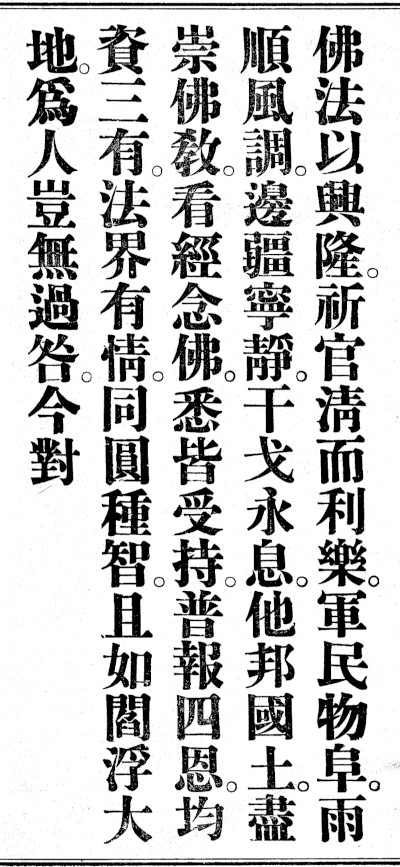 佛法以興隆。祈官淸而利樂。軍民物阜。雨
順風調。邊疆寧靜。干戈永息。他邦國土。盡
崇佛教。看經念佛。悉皆受持。普報四恩。均
資三有。法界有情。同圓種智。且如閻浮大
地。爲人豈無過咎。今對